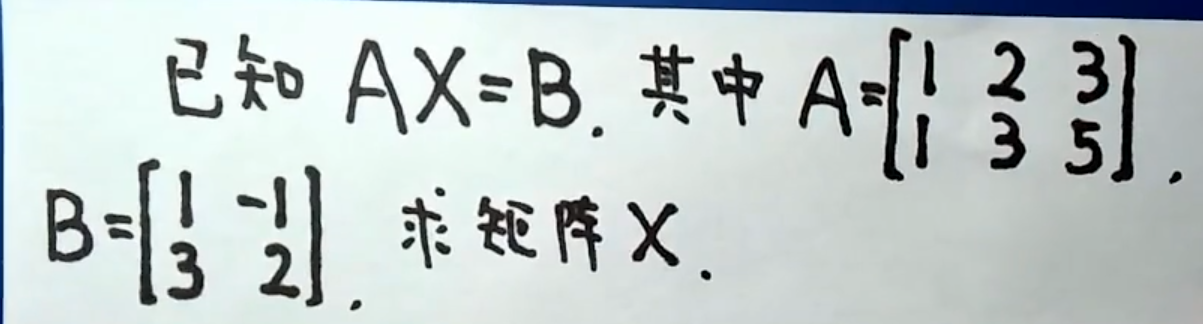 已知 AX=B. 其中 A=[1 2 3
1 3 5].
B=[1 -1
3 2]. 求矩阵X.